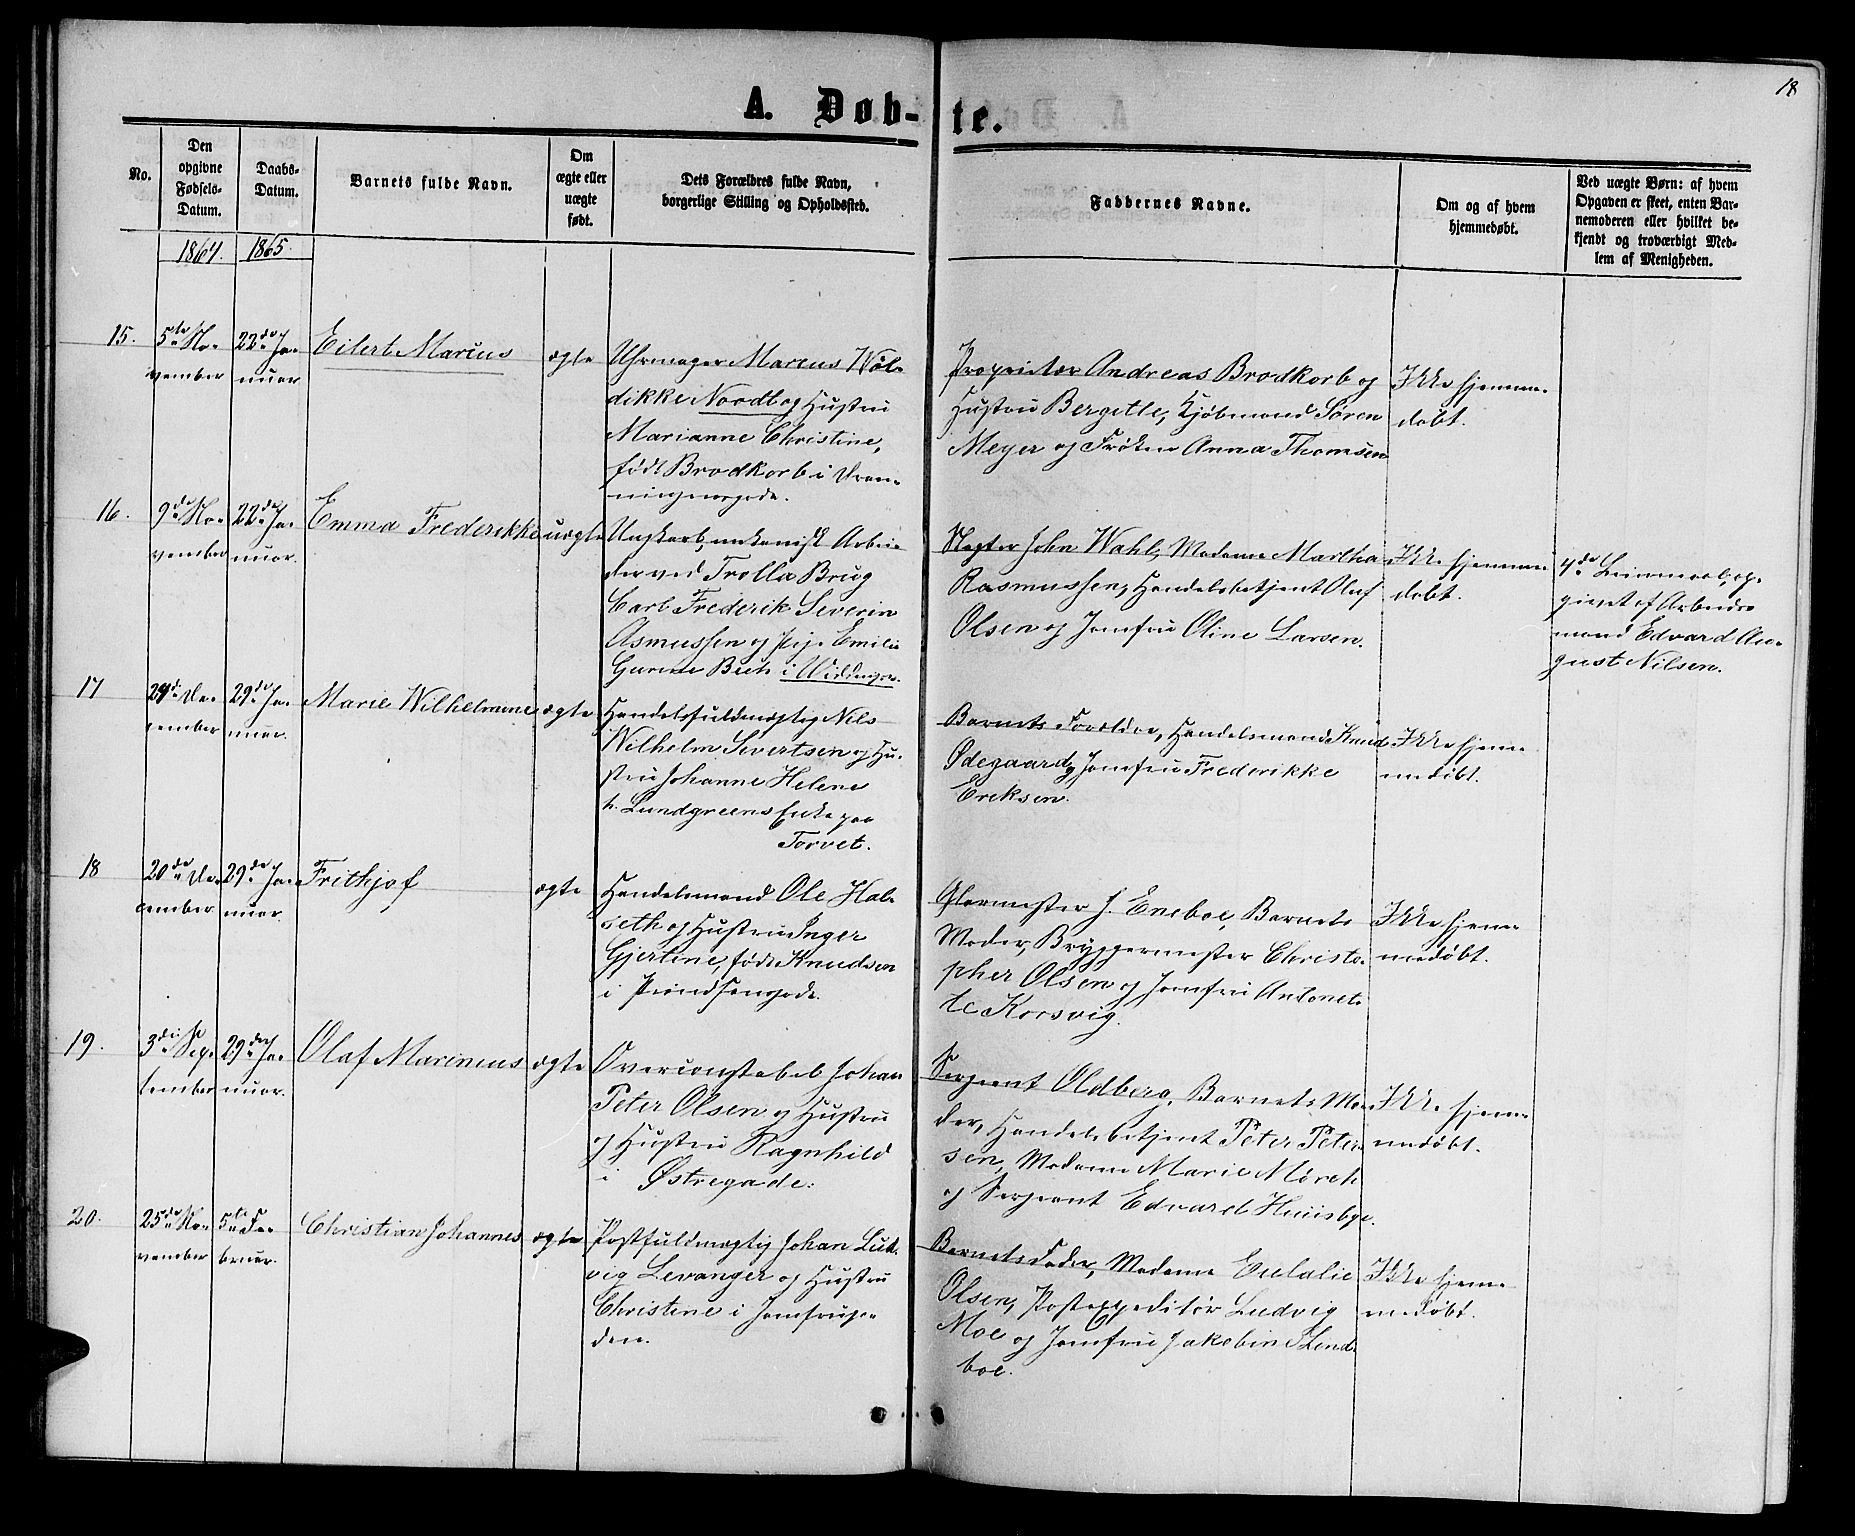 18
A. Døb-te.
No.
Den
opgivne
Fødsels-
Datum.
Daabs-
Datum.
Barnets fulde Navn.
Om
ægte eller
uægte
født.
Dets Forældres fulde Navn,
borgerlige Stilling og Opholdssted.
Faddernes Navne.
Om og af hvem
hjemmedøbt.
Ved uægte Børn: af hvem
Opgaven er skeet, enten Bar-
nemoderen eller hvilket be-
kjendt og troværdigt Med-
lem af Menigheden.
1864.
1865.
15.
5te No-
vember
22de Ja-
nuar
Eilert Marius
ægte
Uhrmager Marcus Wøl-
dikke Nordt og Hustru
Marianne Christine,
født Brodkorb i Dron-
ningensgade.
Proprietær Andreas Brodkorb og
Hustru Bergitte, Kjøbmand Søren
Meyer og Frøken Anna Thomsen
Ikke hjemme-
døbt.
16.
9de No-
vember
22de Ja-
nuar.
Emma Frederikke
uægte
Ungkarl, mekanisk Arbei-
der ved Trolla Brug
Carl Frederik Severin
Asmussen og Pige Emilie
Gurine Bech i
Slagter John Wahl, Madame Martha
Rasmussen, Handelsbetjent Oluf
Olsen og Jomfru Oline Larsen.
Ikke hjemme-
døbt.
4de Leiermaal, op-
givet af Arbeids-
mand Edvard Au-
gust Nilsen.
17
29de De-
cember
29de Ja-
nuar.
Marie Wilhelmine
ægte
Handelsfuldmægtig Nils
Wilhelm Severtsen og Hu-
stru Johanne Helene
h. Lundgreens Enke paa
Torvet.
Barnets Forældre, Handelsmand Knud
Ødegaard og Jomfru Frederikke
Ericksen.
Ikke hjem-
medøbt.
18
20de De-
cember
29de Ja-
nuar.
Frithjof
ægte
Handelsmand Ole Hal-
seth og Hustru Inger
Gjertine, født Knudsen
i Prindsensgade.
Glarmester J. Eneboe, Barnets
Moder, Bryggermester Christo-
pher Olsen og Jomfru Antonet-
te Korsvig.
Ikke hjem-
medøbt.
19.
3die Sep-
tember
29de Ja-
nuar.
Olaf Marinius
ægte
Overconstabel Johan
Peter Olsen og Hustru
og Hustru Ragnhild
i Østregade.
Sergeant Oldberg, Barnets Mo-
der, Handelsbetjent Peter Peter-
sen, Madame Marie Mørch
og Sergeant Edvard Huusbye.
Ikke hjem-
medøbt.
20.
25de No-
vember
5te Fe-
bruar.
Christian Johannes
ægte
Postfuldmægtig Johan Lud-
vig Levanger og Hustru
Christine i Jomfruga-
den.
Barnets Fader, Madame Eulalie
Olsen, Postexpeditør Ludvig
Moe og Jomfru Jakobine Lind-
boe.
Ikke hjem-
medøbt.